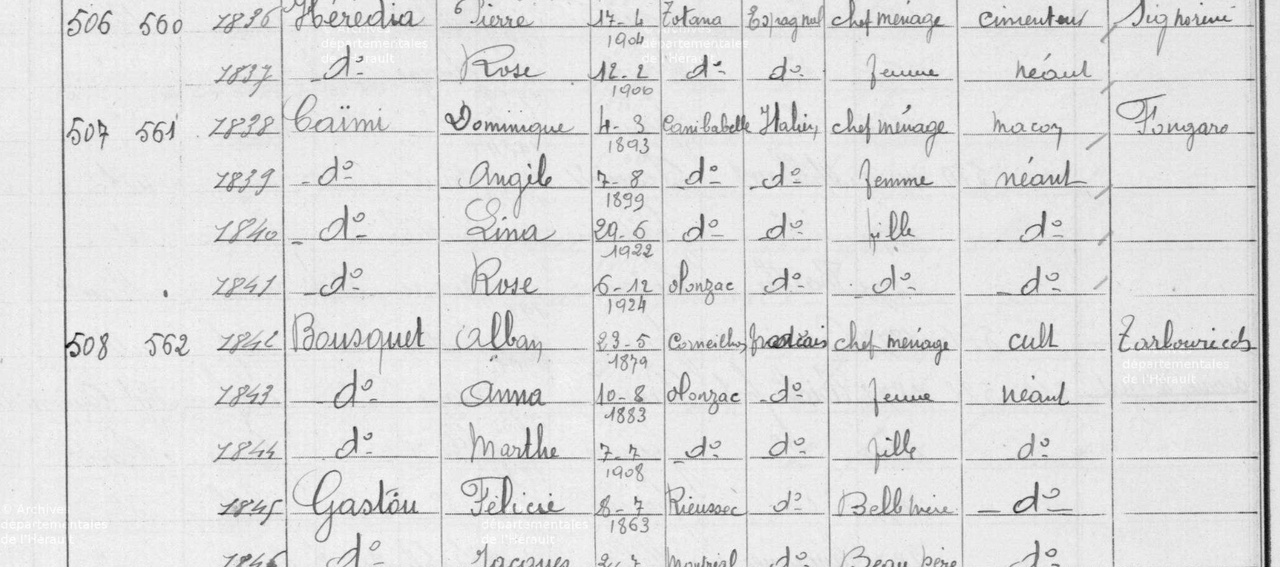 506 560 1836 Hérédia Pierre 17-4 1904 Totana Espagnol chef ménage cimenteur Signorini
1837 -d°- Rose 12-2 1906 d°- d°- femme néant
507 561 1838 Caïmi Dominique 4-3 1893 Italien chef ménage maçon Fongaro
1839 -d°- Angèle 7-8 1899 -d°- -d°- femme néant
1840 -d°- Lina 29-6 1922 d°- -d°- fille d°-
1841 d°- Rose 6-12 1924 Olonzac d°- -d°- -d°-
508 562 1842 Bousquet Alban 23-5 1879 Corneilhan français chef ménage cult
1843 d°- Anna 10-8 1883 Olonzac -d°- femme néant
1844 d°- Marthe 7-7 1908 -d°- d°- fille d°-
1845 Gastou Félicie 8-7 1863 Rieussec d°- Belle mère -d°-
1846 d°- Jacques Montréal d°- Beau père d°-
© Archives
départementales
de l'Hérault